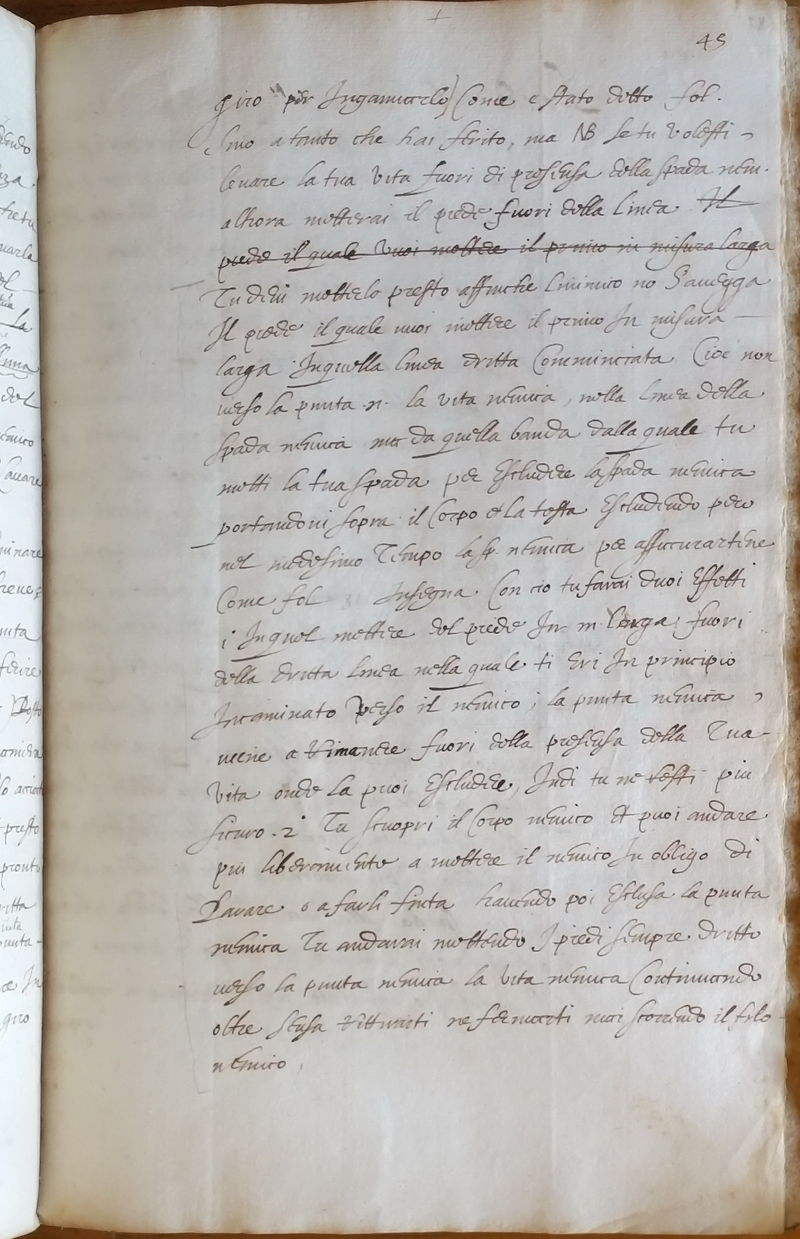 45
giro per Ingannarelo) Come e stato detto fol.
sino a tanto che hai ferito, ma NB se tu volessi
levare la tua vita fuori di presensa della spada nem.
alhora metterai il piede fuori della linea Il
piede il quale vuoi mettere il primo in misura larga
Tu devi metterlo presto affinche l'inimico no s'avegga
Il piede il quale vuoi mettere il primo In misura
larga In quella linea dritta Comminciata Cioe non
verso la punta .n. la vita nemica, nella linea della
spada nemica ma da quella banda dalla quale tu
metti la tua spada per Escludere la spada nemica
portandovi sopra il Corpo et la testa Escludendo pero
nel medesimo Tempo la sp. nemica per assicurartene
Come fol Insegna Con cio tu farai duoi Effetti
1 In quel mettere del piede In m larga fuori
della dritta linea nella quale ti Eri In principio
Incaminato verso il nemico; la punta nemica,
viene a rimanere fuori della presensa della Tua
vita onde la puoi Escludere, Indi tu ne resti piu
sicuro. 2 Tu scuopri il Corpo nemico et puoi andare
piu liberamente a mettere il nemico In obligo di
Parare o a farli finta havendo poi Esclusa la punta
nemica Tu andarai mettendo I piedi sempre dritto
verso la punta nemica la vita nemica Continuando
oltre sensa rittirarti ne fermarti mai scorrendo il filo
nemico,